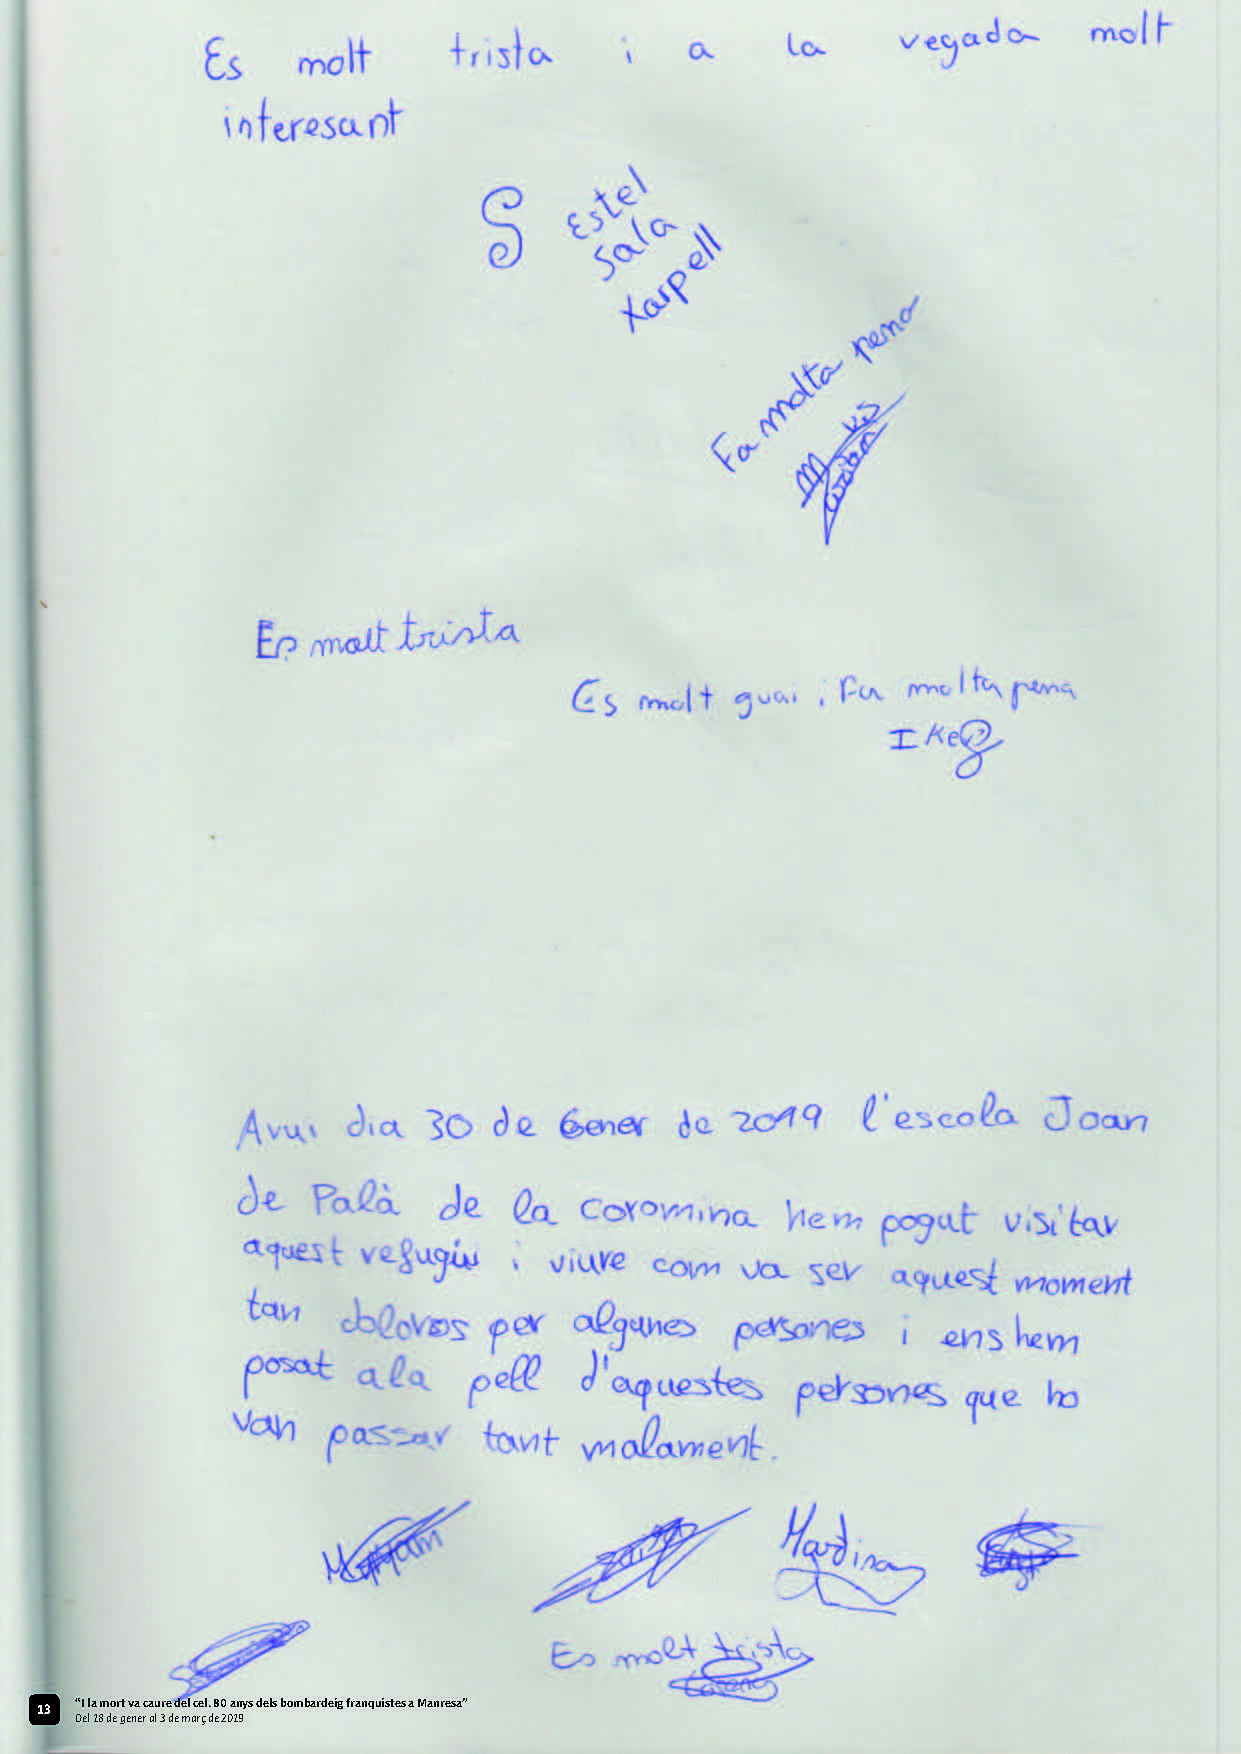 Es molt trista i a la vegada molt
interesant
S
Estel
Sala
Xarpell
Fa molta pena
Es molt trista
Es molt guai i Fa molta pena
IKer
Avui dia 30 de Gener de 2019 l'escola Joan
de Palà de la coromina hem pogut visitar
aquest refugiu i viure com va ser aquest moment
tan doloros per algunes persones i ens hem
posat a la pell d'aquestes persones que ho
van passar tant malament.
Mardina
Es molt trista
13
"I la mort va caure del cel. 80 anys dels bombardeig franquistes a Manresa"
Del 18 de gener al 3 de març de 2019